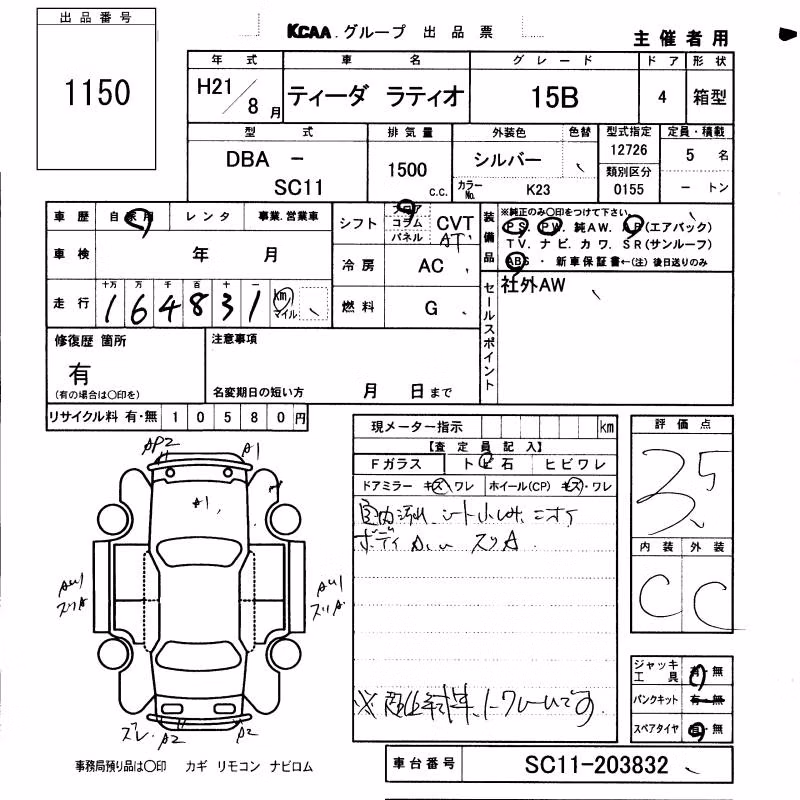 出品番号
1150
KCAA グループ 出品票
主催者用
年式 車名 グレード ドア 形状
H21/8月 ティーダ ラティオ 15B 4 箱型
型式 排気量 外装色 色替 型式指定 定員・積載
DBA - SC11 1500 c.c. シルバー 12726 5 名
カラーNo. K23 類別区分 0155 - トン
車歴 自家用 レンタ 事業.営業車
車検 年 月
走行 十万 万 千 百 十 一
164831 km マイル
シフト フロア コラム パネル CVT
AT
冷房 AC
燃料 G
装備品
※純正のみ〇印をつけて下さい。
PS. PW. 純AW. AB(エアバック)
TV. ナビ. カワ. SR(サンルーフ)
ABS ・ 新車保証書←(注)後日送りのみ
セールスポイント
社外AW
修復歴 箇所
有
(有の場合は〇印を)
注意事項
名変期日の短い方 月 日まで
リサイクル料 有・無 10580円
現メーター指示 km
【査定員記入】
Fガラス トビ石 ヒビワレ
ドアミラー キズ ワレ ホイール(CP) キズ・ワレ
室内汚れ シート
ボディ スリA
評価点
3.5
内装 外装
C C
AP2 A1
A1
スリA
スリA
スレ A2 A2
ジャッキ工具 有・無
パンクキット 有・無
スペアタイヤ 有・無
事務局預り品は〇印 カギ リモコン ナビロム
車台番号 SC11-203832